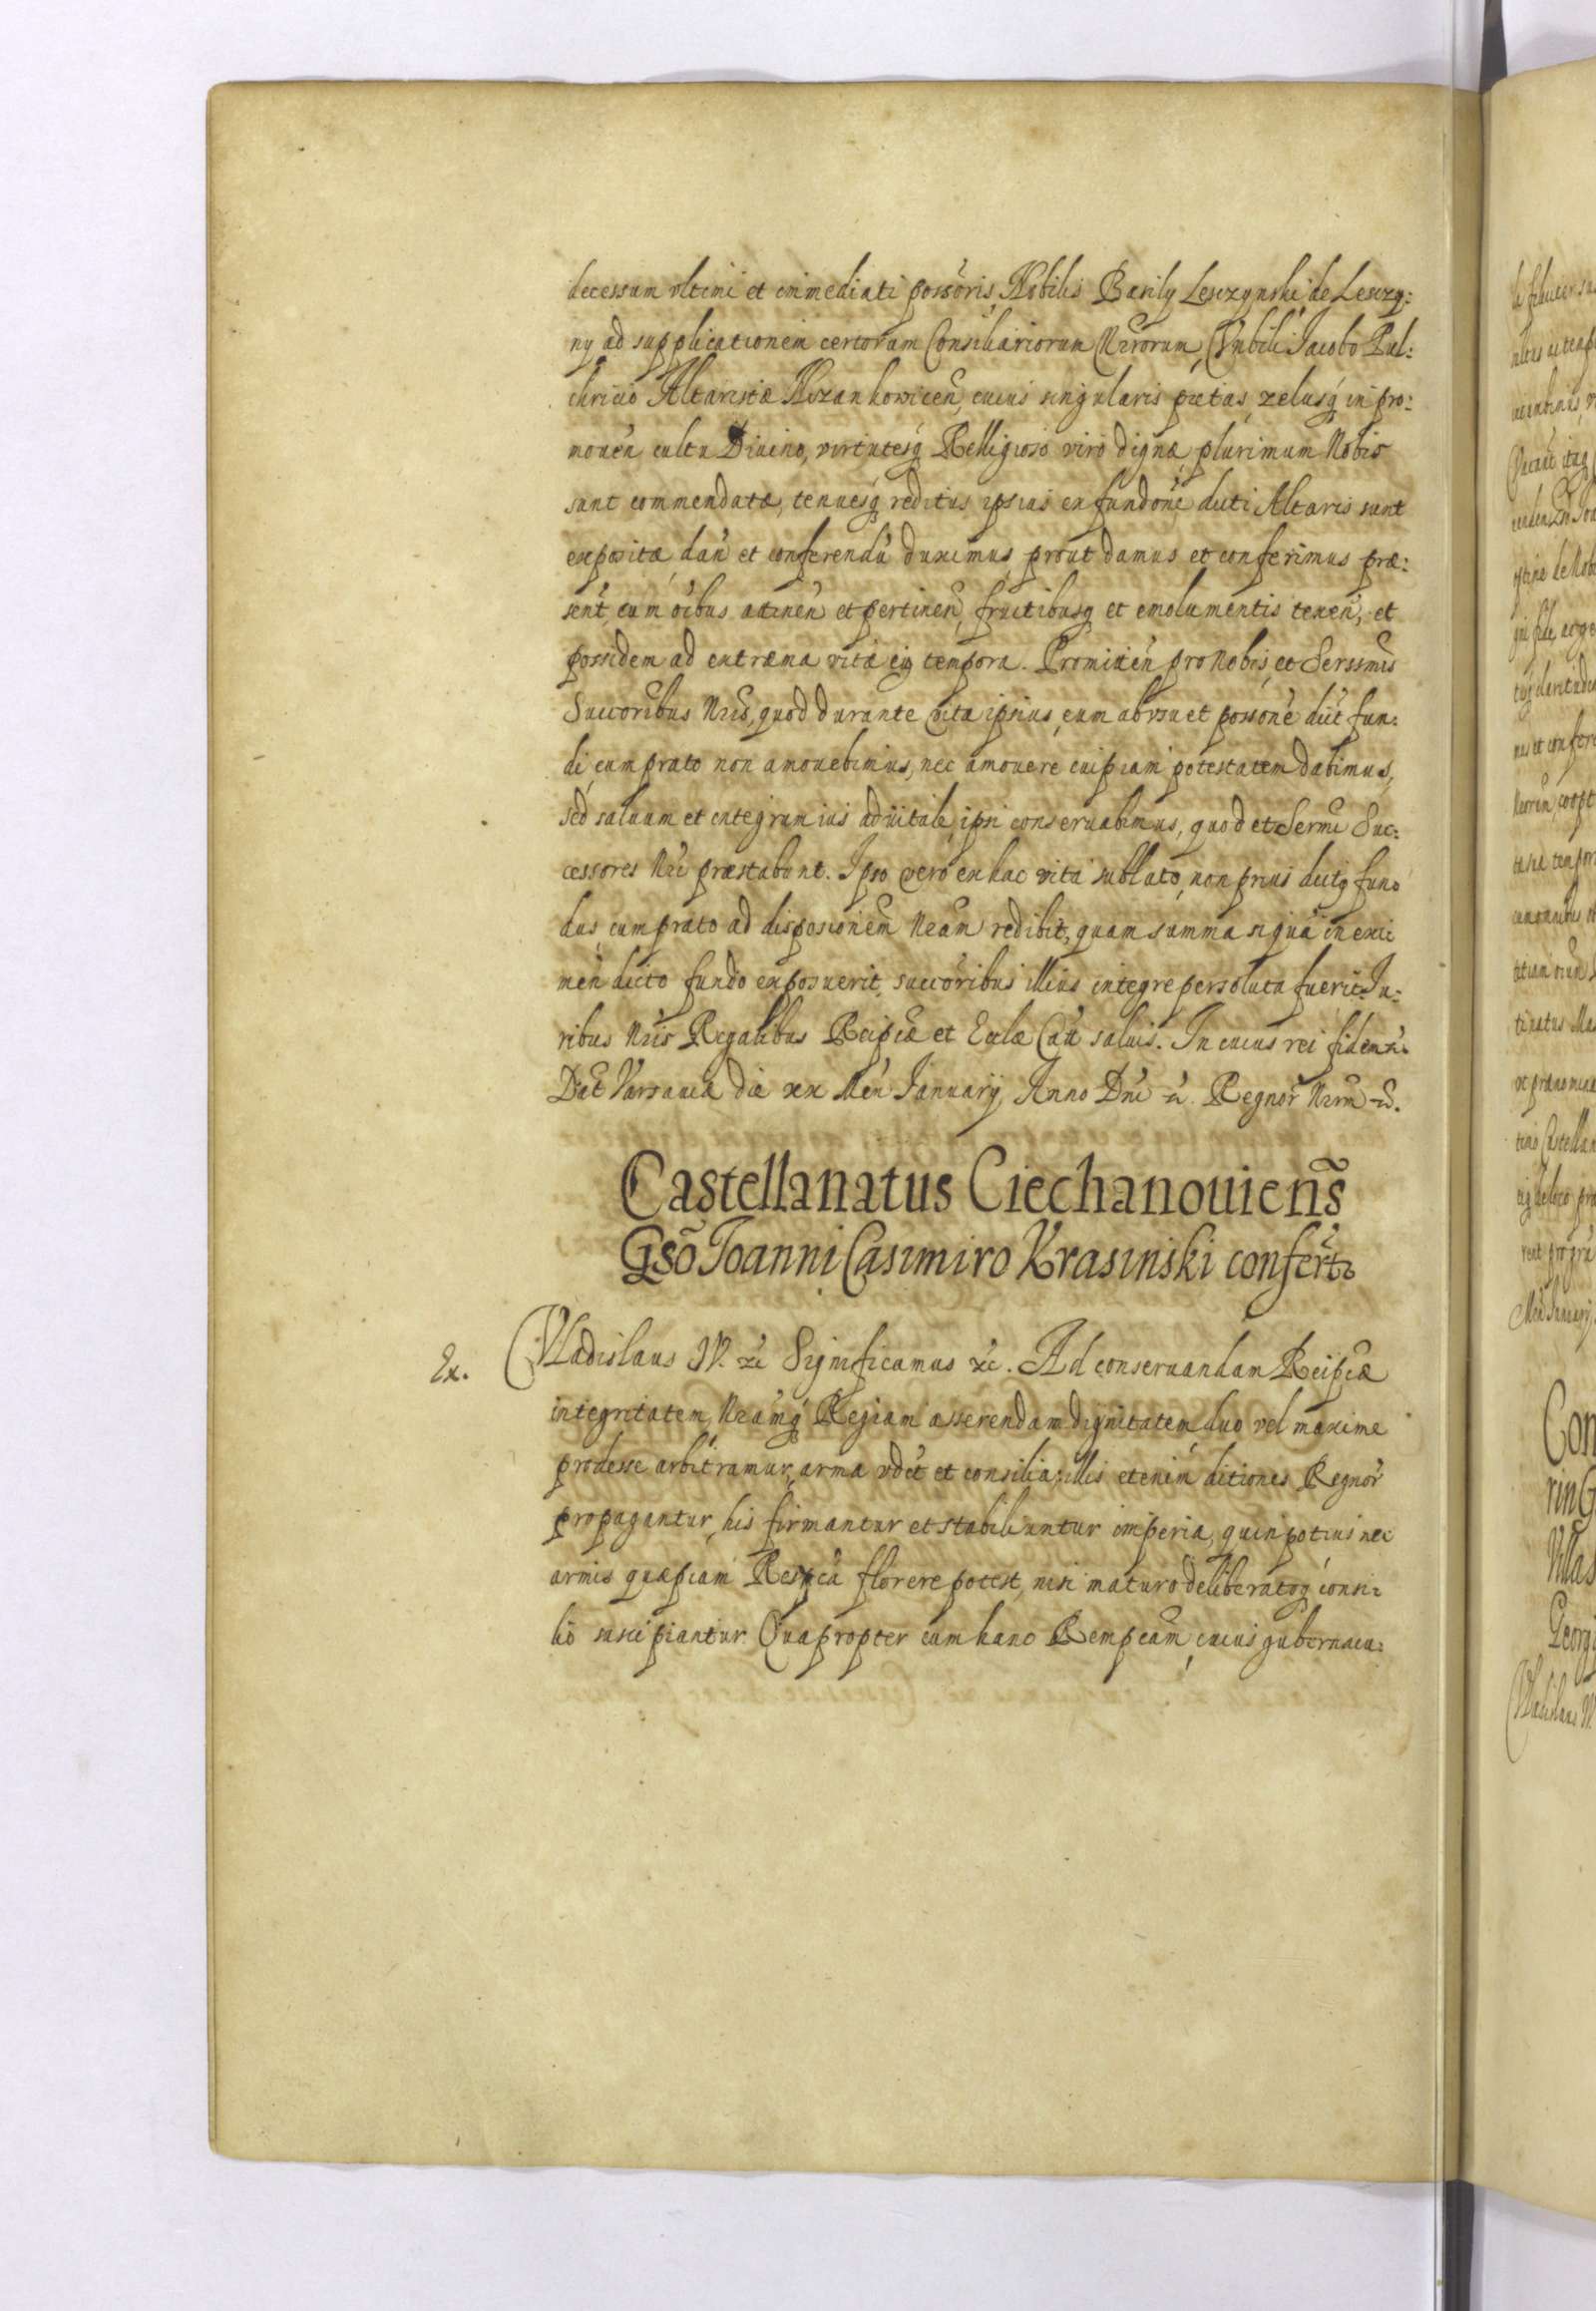 decessum vltimi et immediati possoris, Nobilis Basily Lesczynski de Lesczy:
ny ad supplicationem certorum Consiliariorum Nrorum, Vnbili Jacobo Pul:
chricio Altaristæ Kozankowicen, cuius singularis pietas, zelusq in pro:
mouen cultu Diuino, virtutesq Relligioso viro dignæ, plurimum Nobis
sunt commendatæ, tenuesq reditus ipsius ex fundone dicti Altaris sunt
expositæ dan et conferendu duximus, prout damus et conferimus præ:
sent, cum oibus attinen et pertinen, fructibusq et emolumentis tenen, et
possiden ad extræma vitæ eiq tempora. Promitten pro Nobis, et Serssmis
Succoribus Nris, quod durante vita ipsius, eum ab vsu et possone dict fun:
di, cum prato non amouebimus, nec amouere cuipiam potestatem dabimus,
sed saluum et integrum ius aduitale, ipsi conseruabimus, quod et Sermi Suc:
cessores Nri præstabunt. Ipso vero ex hac vita sublato, non prius dictq fun:
dus, cum prato ad disposionem Nram redibit, quam summa siqua in exti
men dicto fundo exposuerit, succoribus illius integre persoluta fuerit. Iu:
ribus Nris Regalibus Reipcæ et Ecclæ Catt saluis. In cuius rei fidem &.
Dat Varsauiæ die xx Men January, Anno Dni &. Regnor Nrorum &.
Castellanatus Ciechanouiens
Gso Joanni Casimiro Krasinski confert
Ex. Vladislaus IV. &c Significamus &c. Ad conseruandam Reipcæ
integritatem, Nramq Regiam asserendam dignitatem duo vel maxime
prodesse arbitramur, arma vdct et consilia: illis etenim ditiones Regnor
propagantur, his firmantur et stabiliuntur imperia, quin potius nec
armis quæpiam Respca florere potest, nisi maturo deliberatoq consi:
lio suscipiantur. Quapropter cum hanc Rempcam, cuius gubernacu: